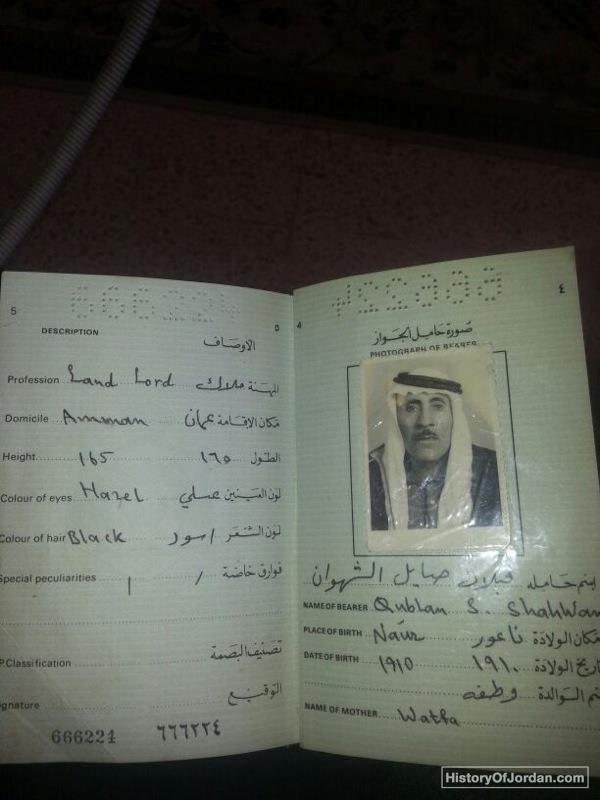 5
DESCRIPTION الاوصاف
Profession Land Lord المهنة ملاك
Domicile Amman مكان الاقامة عمان
Height ١٦٥ ١٦٥ الطول
Colour of eyes Hazel لون العينين عسلي
Colour of hair Black لون الشعر اسود
Special peculiarities / / فوارق خاصة
P.Classification تصنيف البصمة
ignature التوقيع
666224 ٦٦٦٢٢٤
4 ٤
صورة حامل الجواز
PHOTOGRAPH OF BEARER
اسم حامله قبلان صايل الشهوان
NAME OF BEARER Qublan S. Shahwan
PLACE OF BIRTH Naur مكان الولادة ناعور
DATE OF BIRTH ١٩١٥ ١٩١٠ تاريخ الولادة
سم الوالدة وطفه
NAME OF MOTHER Watfa
HistoryOfJordan.com